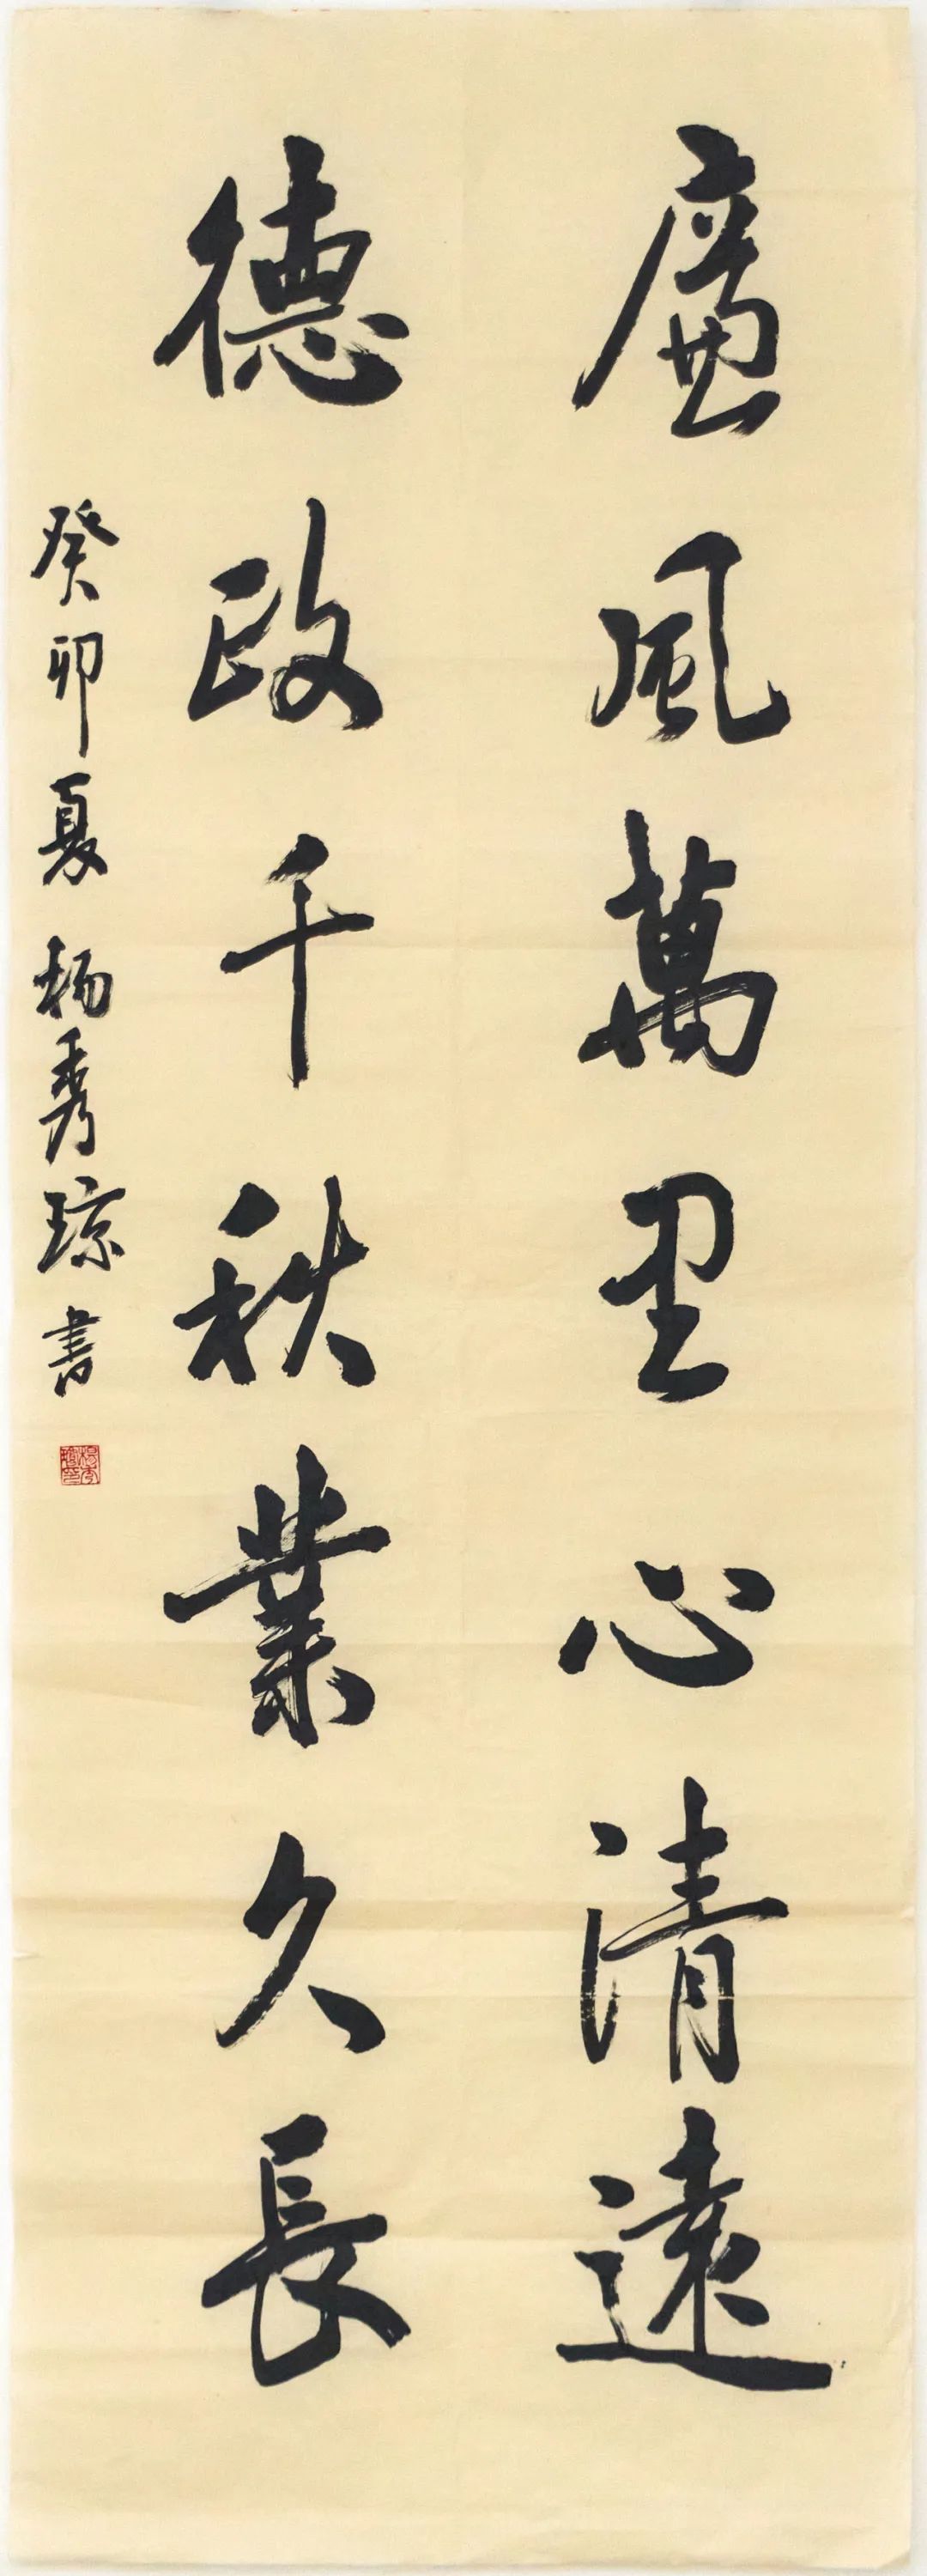 廉風萬里心清遠
德政千秋業久長
癸卯夏 杨秀琼書